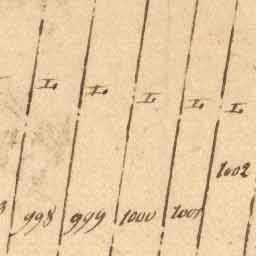 L L L L L
1002
998 999 1000 1001